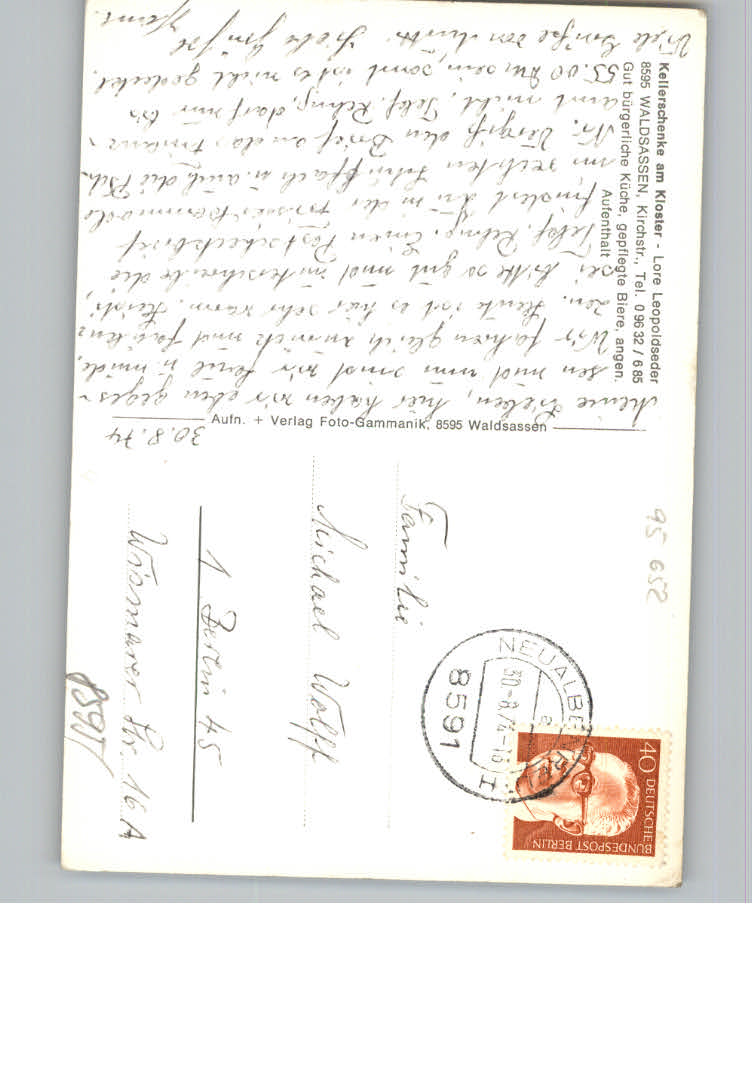 Kellerschenke am Kloster - Lore Leopoldseder
8595 WALDSASSEN, Kirchstr., Tel. 0 96 32 / 6 85
Gut bürgerliche Küche, gepflegte Biere, angen.
Aufenthalt
Aufn. + Verlag Foto-Gammanik, 8595 Waldsassen
30.8.74
Meine Lieben, hier haben wir eben geges-
sen und nun sind wir faul u. müde.
Wir fahren gleich zurück und faulen-
zen. Heute ist es hier sehr warm.
sei bitte so gut und unterschreibe die
Telef. Rehng. Einen Postscheckbrief
findest Du in der
im rechten Fach u. auch die
Nr. Vergiß den Brief an das Finanz-
amt nicht. Telef. Rehng. darf nur bis
55.00 DM sein, sonst ist es nicht gedeckt.
Viele Grüße von Mutti. Liebe Grüße
Familie
Michael Wolff
1 Berlin 45
Wismarer Str. 16A
8591
95 652
NEUALBENREUTH
30.-8.74-16
a
8591
40
DEUTSCHE
BUNDESPOST BERLIN